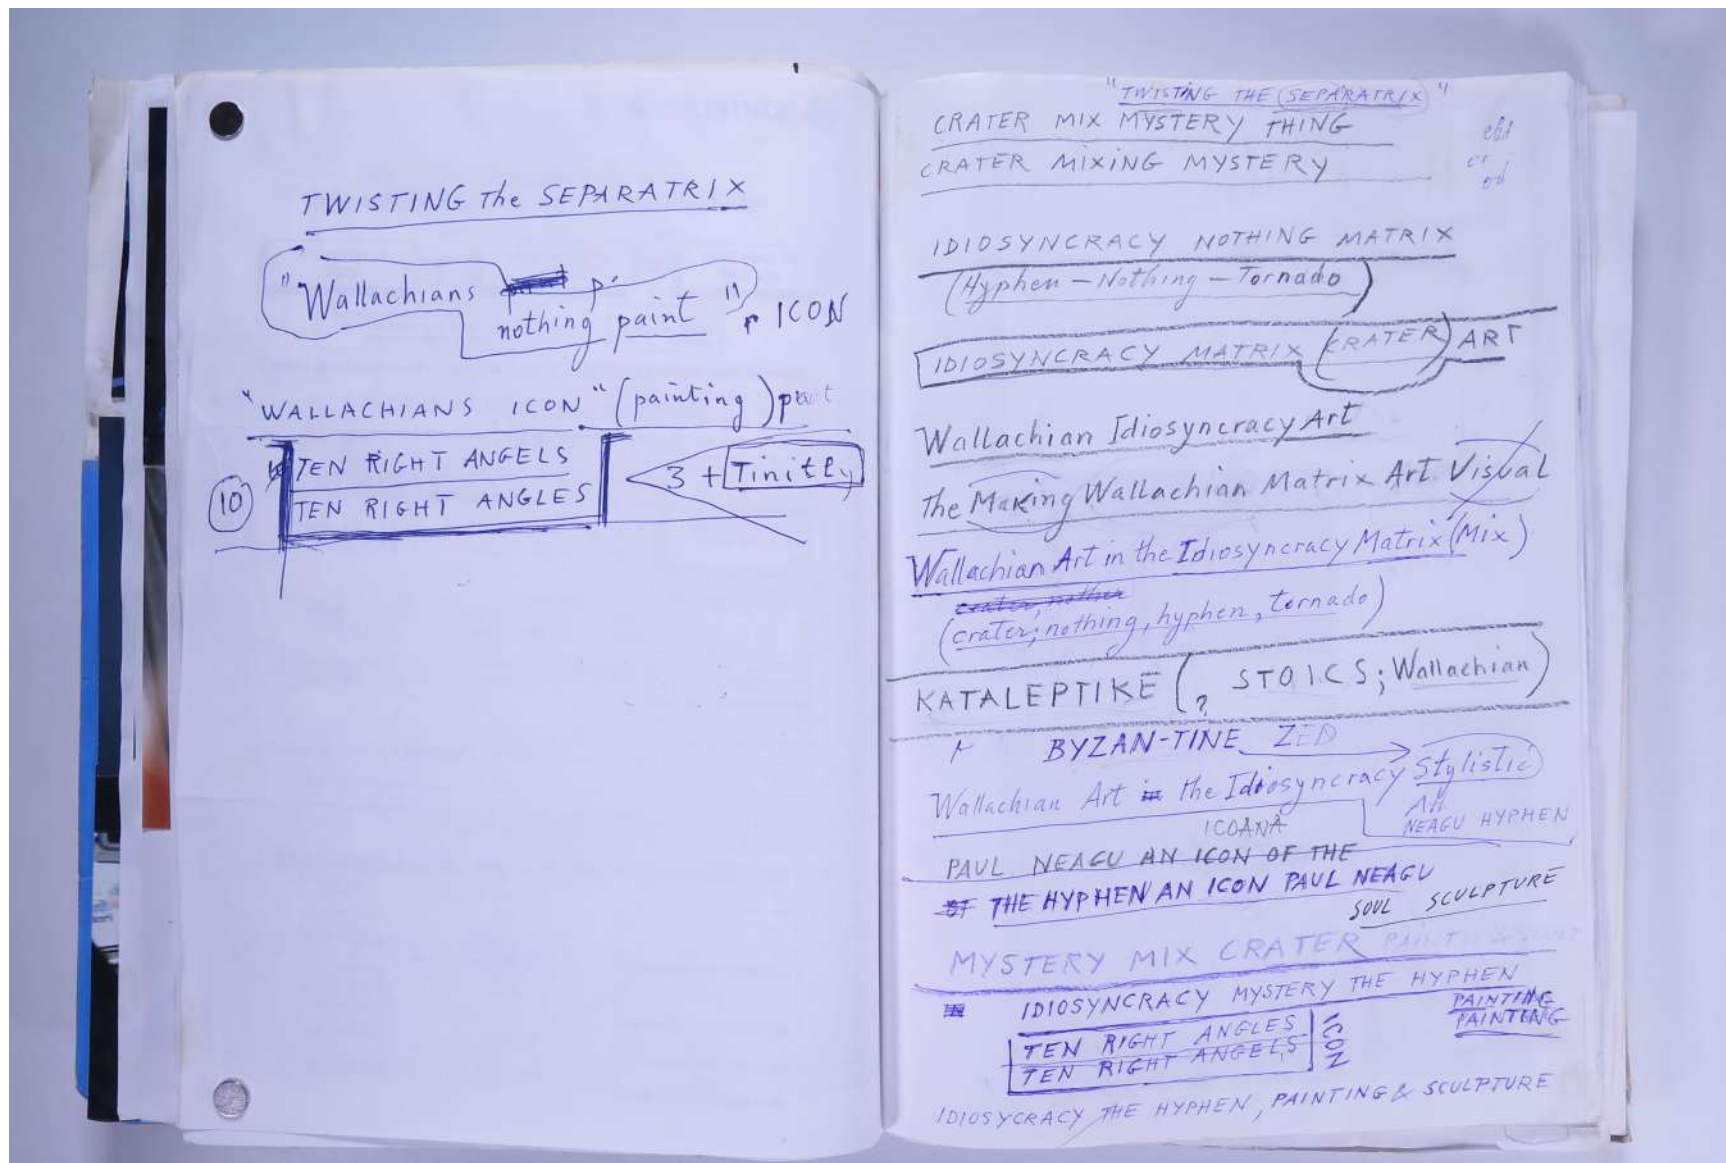 TWISTING the SEPARATRIX
"Wallachians p.
nothing paint" ICON
"WALLACHIANS ICON" (painting)
TEN RIGHT ANGELS
10 TEN RIGHT ANGLES 3 + Tinitly
"TWISTING THE SEPARATRIX"
CRATER MIX MYSTERY THING
CRATER MIXING MYSTERY
IDIOSYNCRACY NOTHING MATRIX
(Hyphen - Nothing - Tornado)
IDIOSYNCRACY MATRIX (CRATER) ART
Wallachian Idiosyncracy Art
the Making Wallachian Matrix Art Visual
Wallachian Art in the Idiosyncracy Matrix (Mix)
crater, nothin
(crater; nothing, hyphen, tornado)
KATALEPTIKE (? STOICS; Wallachian)
BYZAN-TINE ZED
Wallachian Art in the Idiosyncracy Stylistic
NEAGU HYPHEN
ICOANA
PAUL NEAGU AN ICON OF THE
OF THE HYPHEN AN ICON PAUL NEAGU
SOUL SCULPTURE
MYSTERY MIX CRATER PAINT
IDIOSYNCRACY MYSTERY THE HYPHEN
PAINTING
PAINTING
TEN RIGHT ANGLES
TEN RIGHT ANGELS
ICON
IDIOSYCRACY THE HYPHEN, PAINTING & SCULPTURE